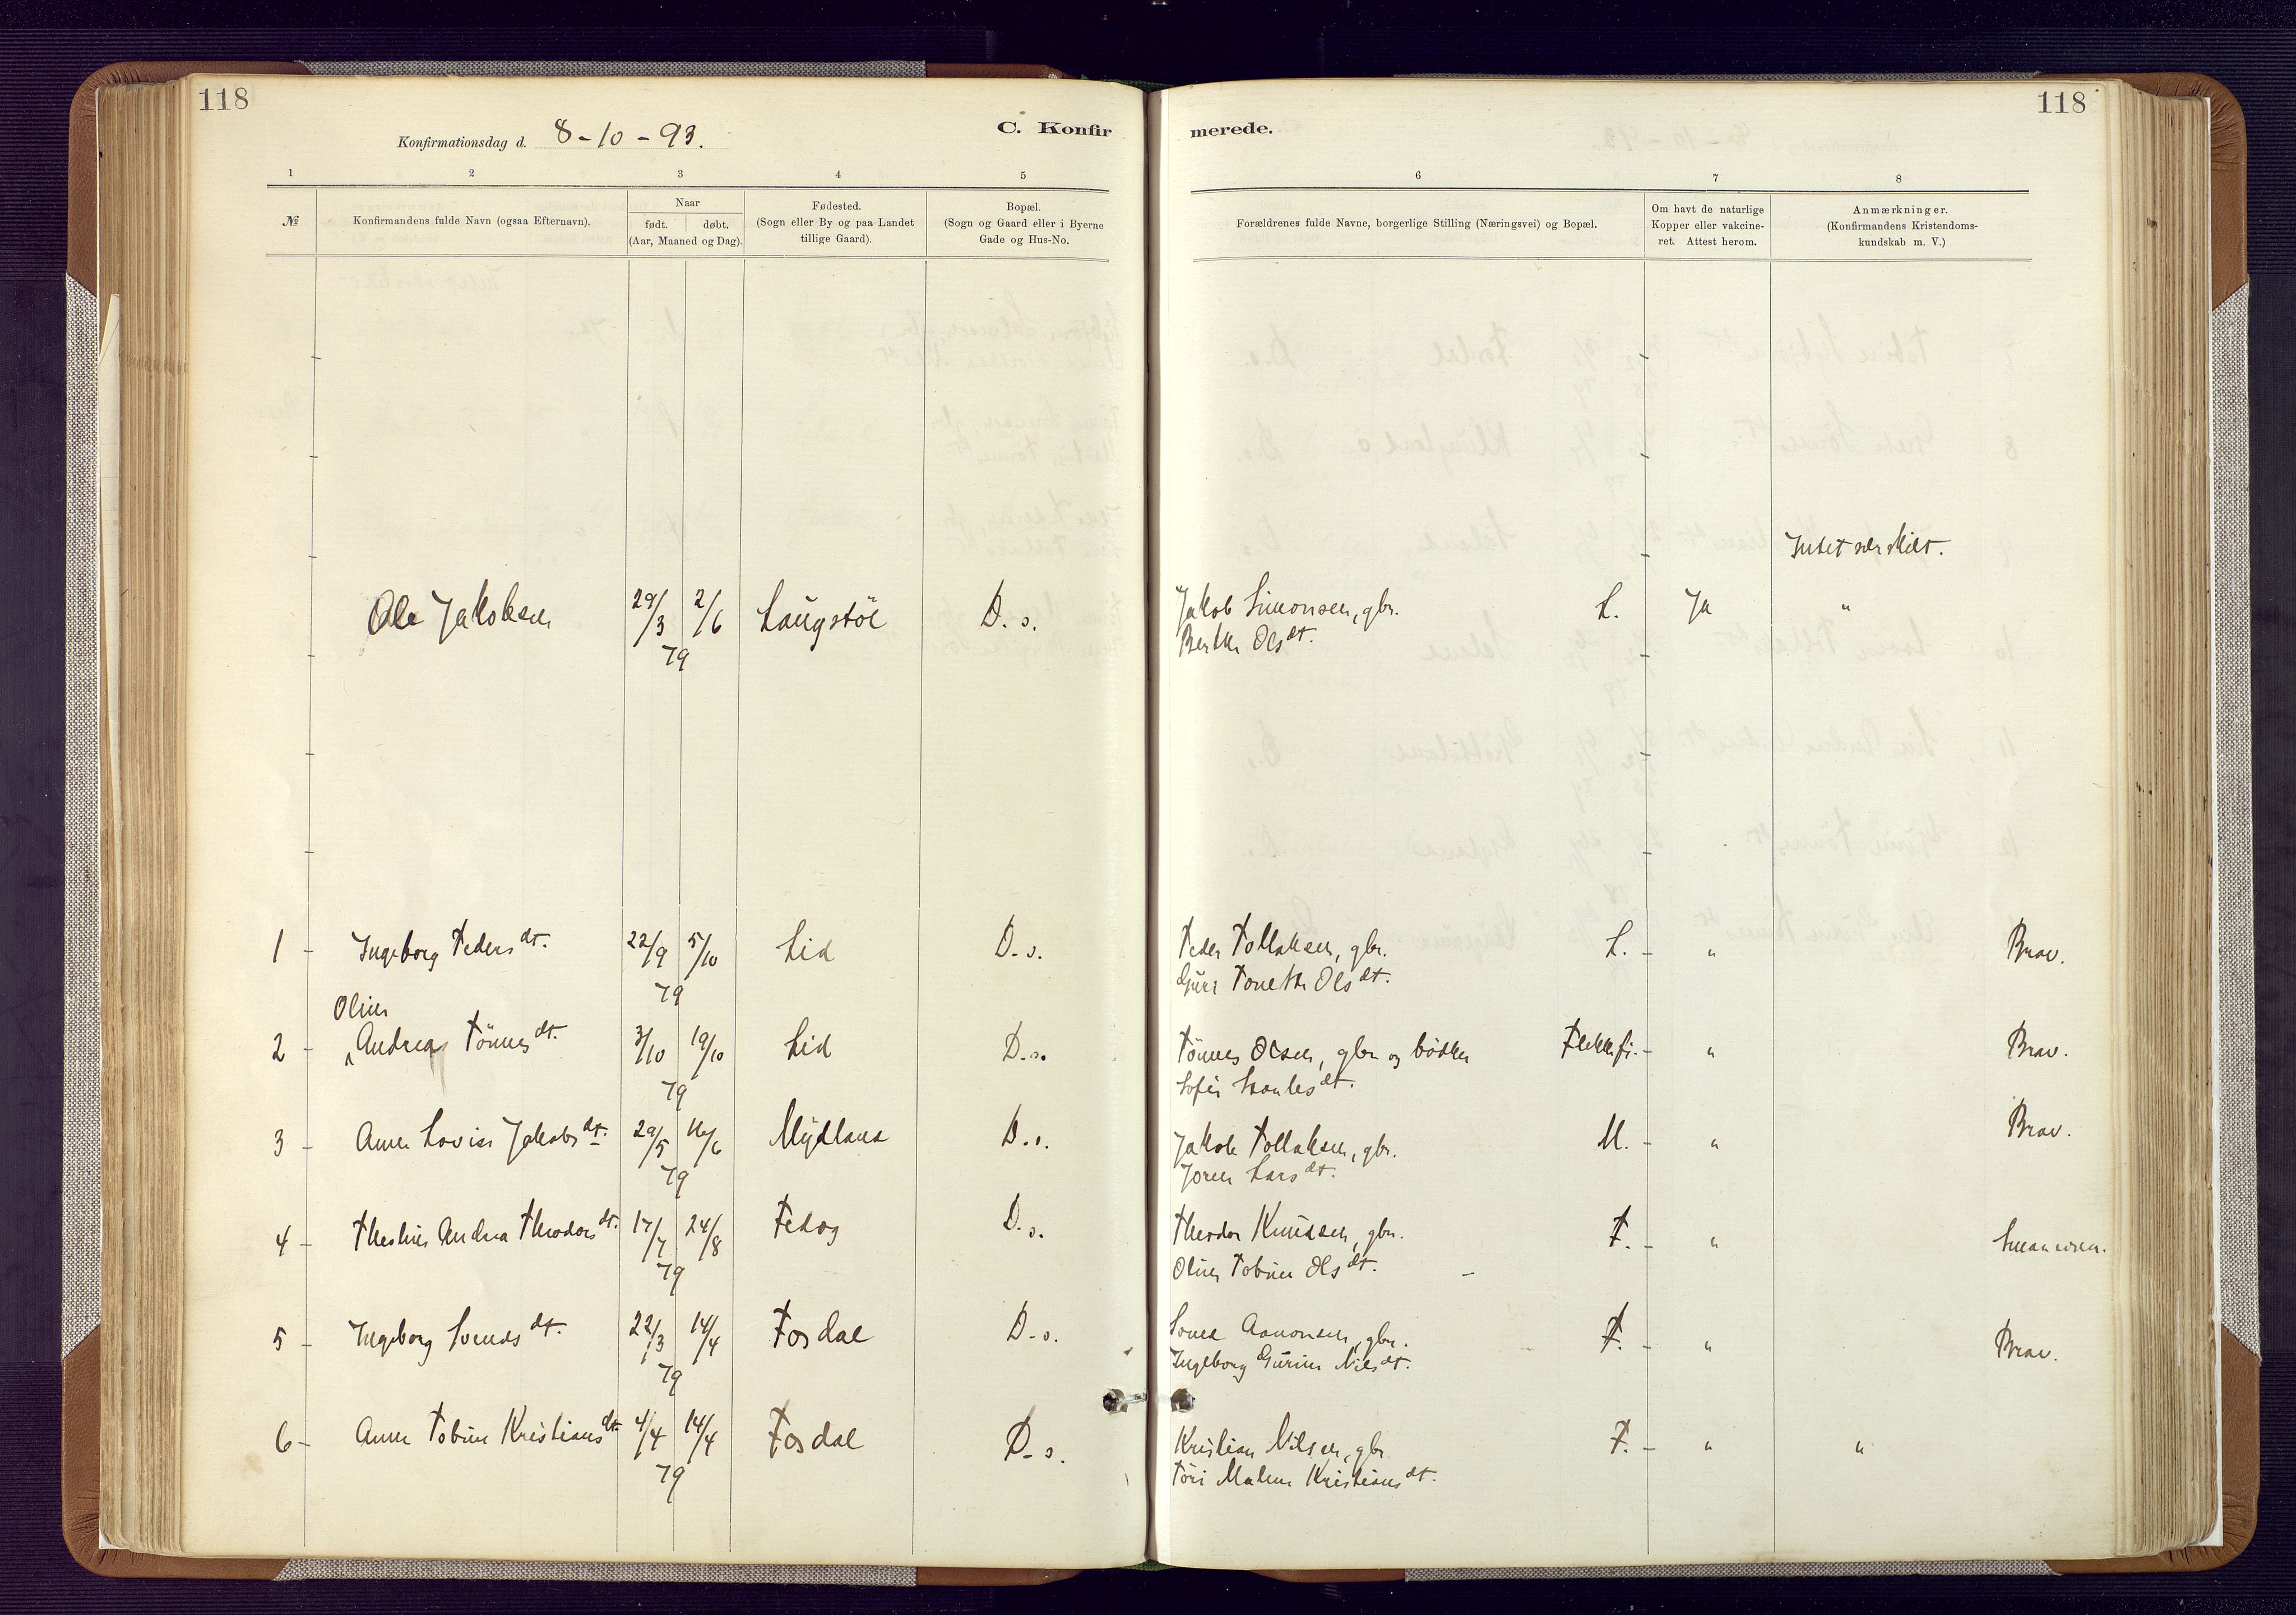 118
118
Konfirmationsdag d. 8-10-93.
C. Konfir
merede.
1 2 3 4 5 6 7 8
№
Konfirmandens fulde Navn (ogsaa Efternavn).
Naar
født. døbt.
(Aar, Maaned og Dag).
Fødested.
(Sogn eller By og paa Landet
tillige Gaard).
Bopæl.
(Sogn og Gaard eller i Byerne
Gade og Hus-No.
Forældrenes fulde Navne, borgerlige Stilling (Næringsvei) og Bopæl.
Om havt de naturlige
Kopper eller vakcine-
ret. Attest herom.
Anmærkninger.
(Konfirmandens Kristendoms-
kundskab m. V.)
Intet særskilt.
Ole Jakobsen 29/3 2/6 Laugstöl D. s. Jakob Simonsen, gbr. L. Ja "
79 Berthe Olsdt.
1 - Ingeborg Pedersdt. 22/9 5/10 Lid D. s. Peder Tollaksen, gbr. L. - " Brav.
79 Guri Tonette Olsdt.
Oline
2 - Andrea Tönnesdt. 3/10 19/10 Lid D. s. Tönnes Olsen, gbr og bödker Flekkefj. - " Brav.
79 Sofie
3 - Anne Lovise Jakobsdt. 29/5 16/6 Mydland D. s. Jakob Tollaksen, gbr. M. - " Brav.
79 Joren Larsdt.
4 - Andrea Theodorsdt. 17/7 24/8 Fedog D. s. Theodor Knudsen, gbr. F. - "
79 Oline Tobine Olsdt. -
5 - Ingeborg Svendsdt. 22/3 14/4 Fosdal D. s. Svend Aanonsen, gbr. F. - " Brav.
79 Ingeborg Gurine Nilsdt.
6 - Anne Tobine Kristiansdt. 4/4 14/4 Fosdal D. s. Kristian Nilsen, gbr F. - " "
79 Töri Malene Kristiansdt.